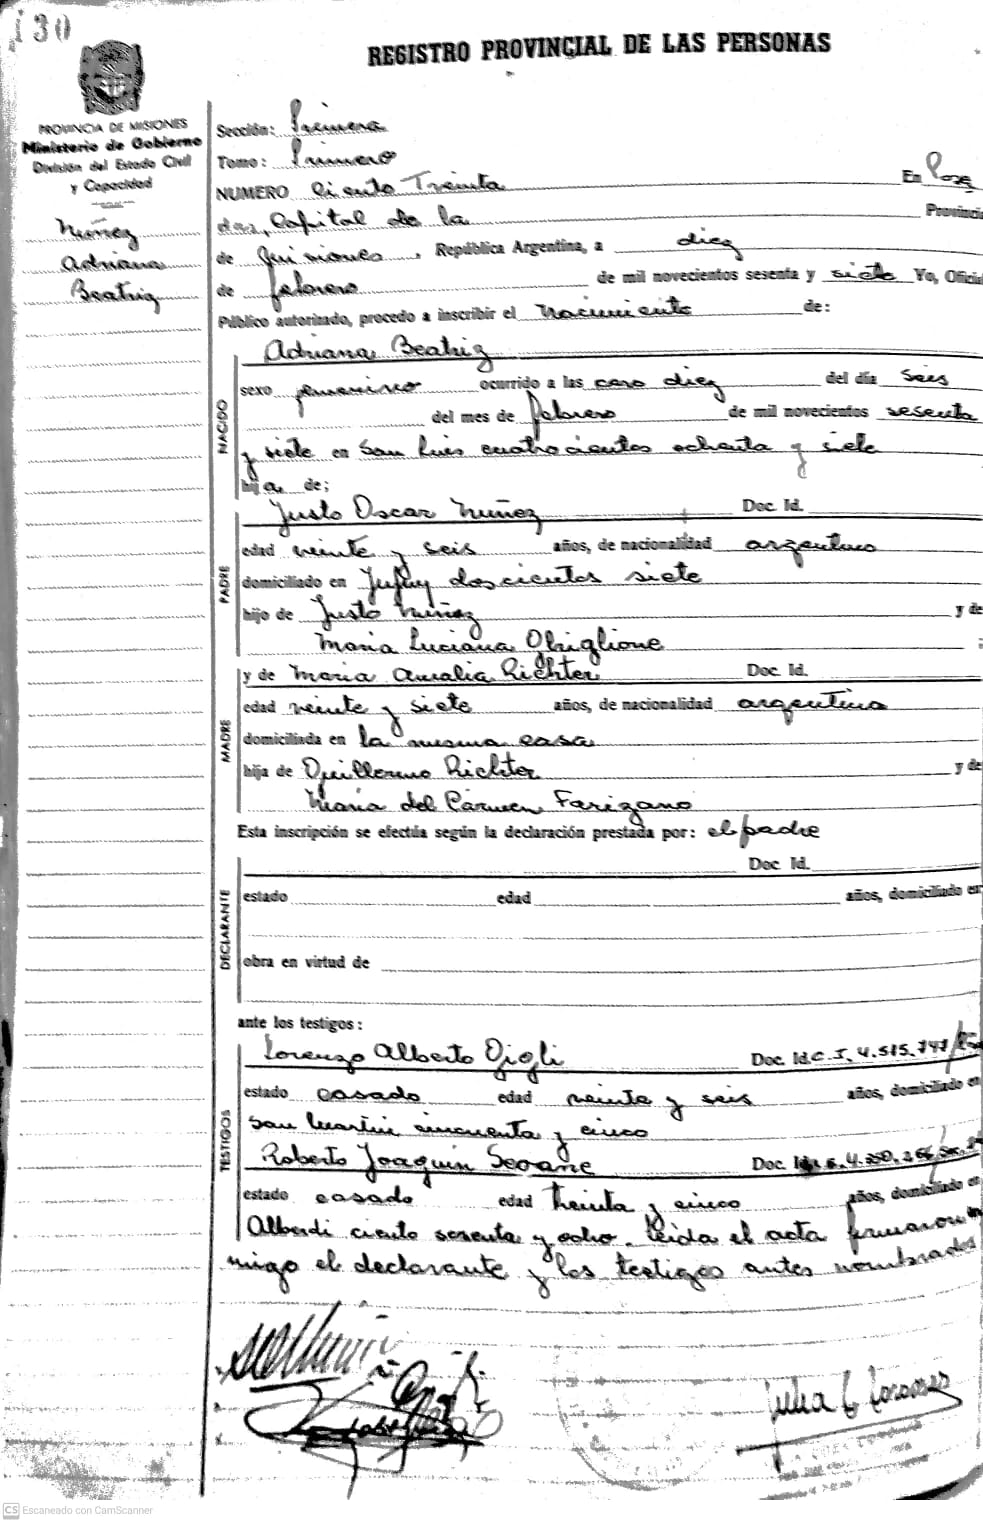 130
REGISTRO PROVINCIAL DE LAS PERSONAS
PROVINCIA DE MISIONES
Ministerio de Gobierno
División del Estado Civil
y Capacidad
Nuñez
Adriana
Beatriz
Sección: Primera
Tomo: Primero
NUMERO Ciento Treinta En Posa
das, Capital de la Provincia
de Misiones, República Argentina, a diez
de febrero de mil novecientos sesenta y siete Yo, Oficial
Público autorizado, procedo a inscribir el nacimiento de:
NACIDO
Adriana Beatriz
sexo femenino ocurrido a las cero diez del día seis
del mes de febrero de mil novecientos sesenta
y siete en San Luis cuatrocientos ochenta y siete
hija de:
PADRE
Justo Oscar Nuñez Doc. Id.
edad veinte y seis años, de nacionalidad argentino
domiciliado en Jujuy doscientos siete
hijo de Justo Nuñez y de
Maria Luciana Obiglione ;
MADRE
y de Maria Amalia Richter Doc. Id.
edad veinte y siete años, de nacionalidad argentina
domiciliada en la misma casa
hija de Guillermo Richter y de
Maria del Carmen Farizano
Esta inscripción se efectúa según la declaración prestada por: el padre
DECLARANTE
Doc. Id.
estado edad años, domiciliado en
obra en virtud de
ante los testigos:
TESTIGOS
Lorenzo Alberto Gigli Doc. Id. C.I. 4.515.747
estado casado edad veinte y seis años, domiciliado en
San Martin cincuenta y cinco
Roberto Joaquin Seoane Doc.
estado casado edad treinta y cinco años, domiciliado en
Alberdi ciento sesenta y ocho. Leida el acta firmaron con
migo el declarante y los testigos antes nombrados
CS Escaneado con CamScanner